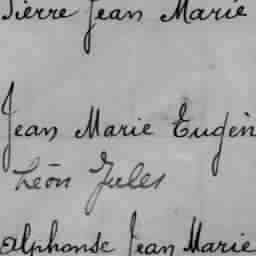 Pierre Jean Marie
Jean Marie Eugèn
Léon Jules
Alphonse Jean Marie